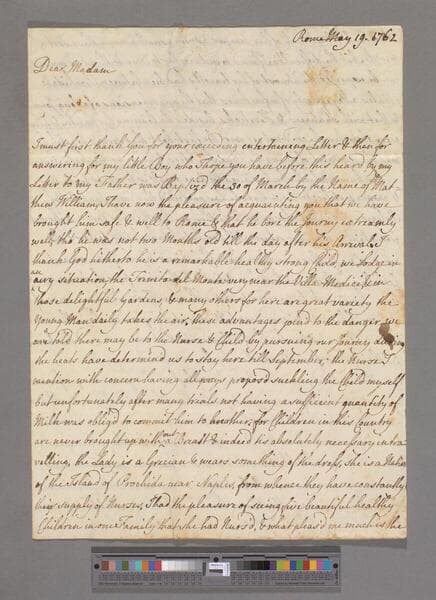 Rome May 19. 1762
Dear Madam
I must first thank You for your exceeding entertaining Letter & then for
answering for my little Boy who I hope you have before this heard by my
Letter to my Father was Baptized the 30 of March by the Name of Mat-
thew William, I have now the pleasure of acquainting you that we have
brought him safe & well to Rome & that he bore the Journey extreamly
well, tho he was not two Months old till the day after his Arrival, I
thank God hitherto he is a remarkable healthy strong Child, we Lodge in
an
airy situation, the Trinita del Monte very near the Villa Medici & in
those delightful Gardens, & many others for here are great variety the
Young Man daily takes the air, These advantages joind to the danger we
are told there may be to the Nurse & Child by pursuing our Journey during
the heats have determind us to stay here till September, the Nurse I
mention with concern having allways proposd suckling the Child myself
but unfortunately after many trials not having a sufficient quantity of
Milk was obligd to commit him to another, for Children in this Country
are never brought up without Breast & indeed tis absolutely necessary in tra-
velling, the Lady is a Grecian & wears something of the dress, she is a Native
of the Island of Prochida near Naples, from whence they have constantly
their supply of Nurses, I had the pleasure of seeing five beautiful healthy
Children in one Family that she had Nurs'd, & what pleas'd me much is the